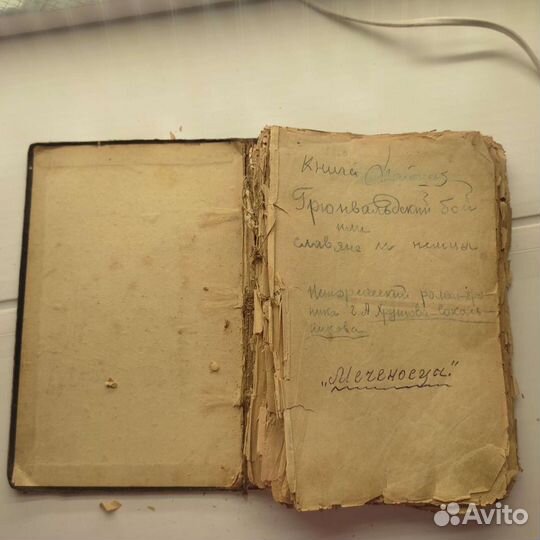 Книга
Грюнвальдский бой
или
славяне и немцы
Исторический роман-хро
ника Г. А. Хрущова-Соколь
никова
„Меченосцы."
Avito